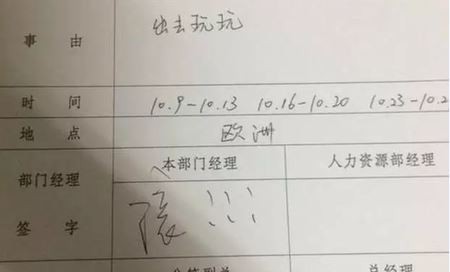 事 由 出去玩玩
时 间 10.9-10.13 10.16-10.20 10.23-10.2
地 点 欧洲
本部门经理 人力资源部经理
部门经理
签 字 张
总经理